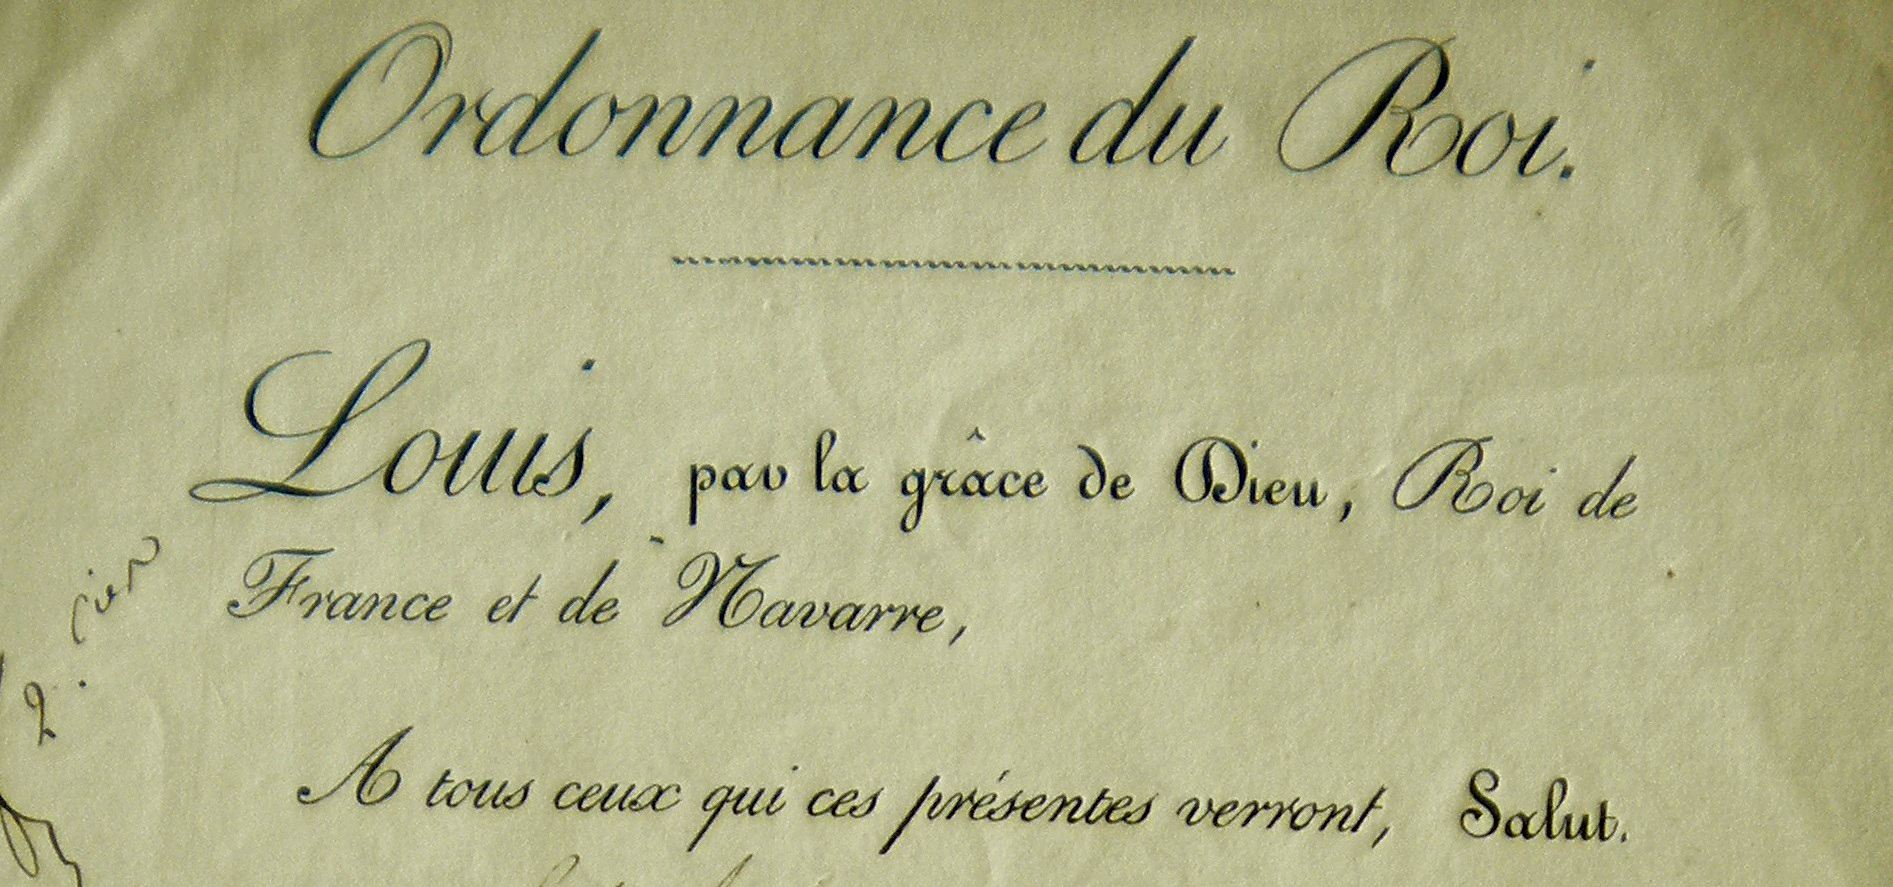 Ordonnance du Roi.
Louis, par la grâce de Dieu, Roi de
France et de Navarre,
A tous ceux qui ces présentes verront, Salut.
2. rien